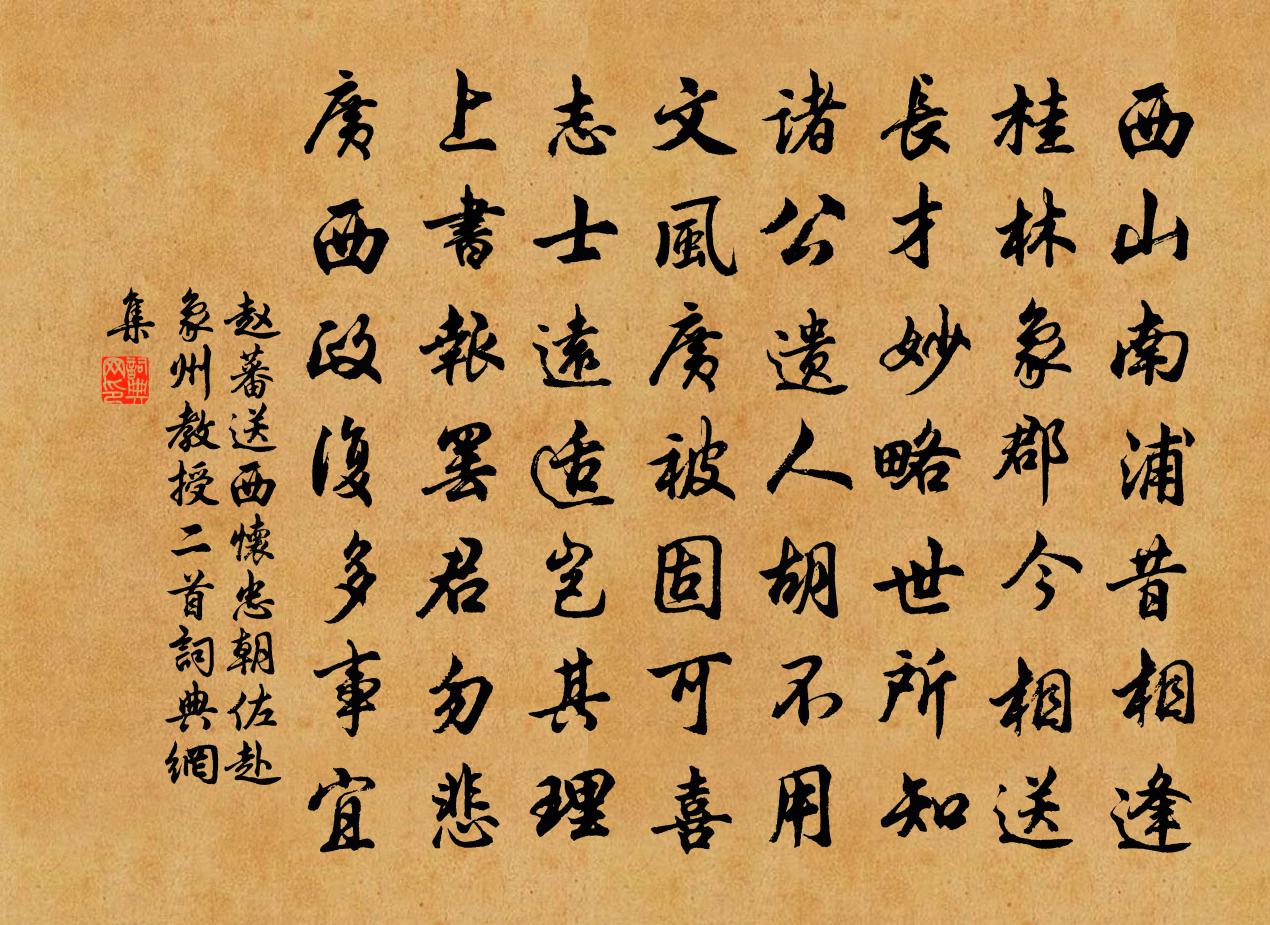 西山南浦昔相逢
桂林象郡今相送
長才妙略世所知
諸公遗人胡不用
文風廣被固可喜
志士遠适岂其理
上書報罢君勿悲
廣西政復多事宜
赵蕃送西懷忠朝佐赴
象州教授二首詞典網
集
詞典
网印